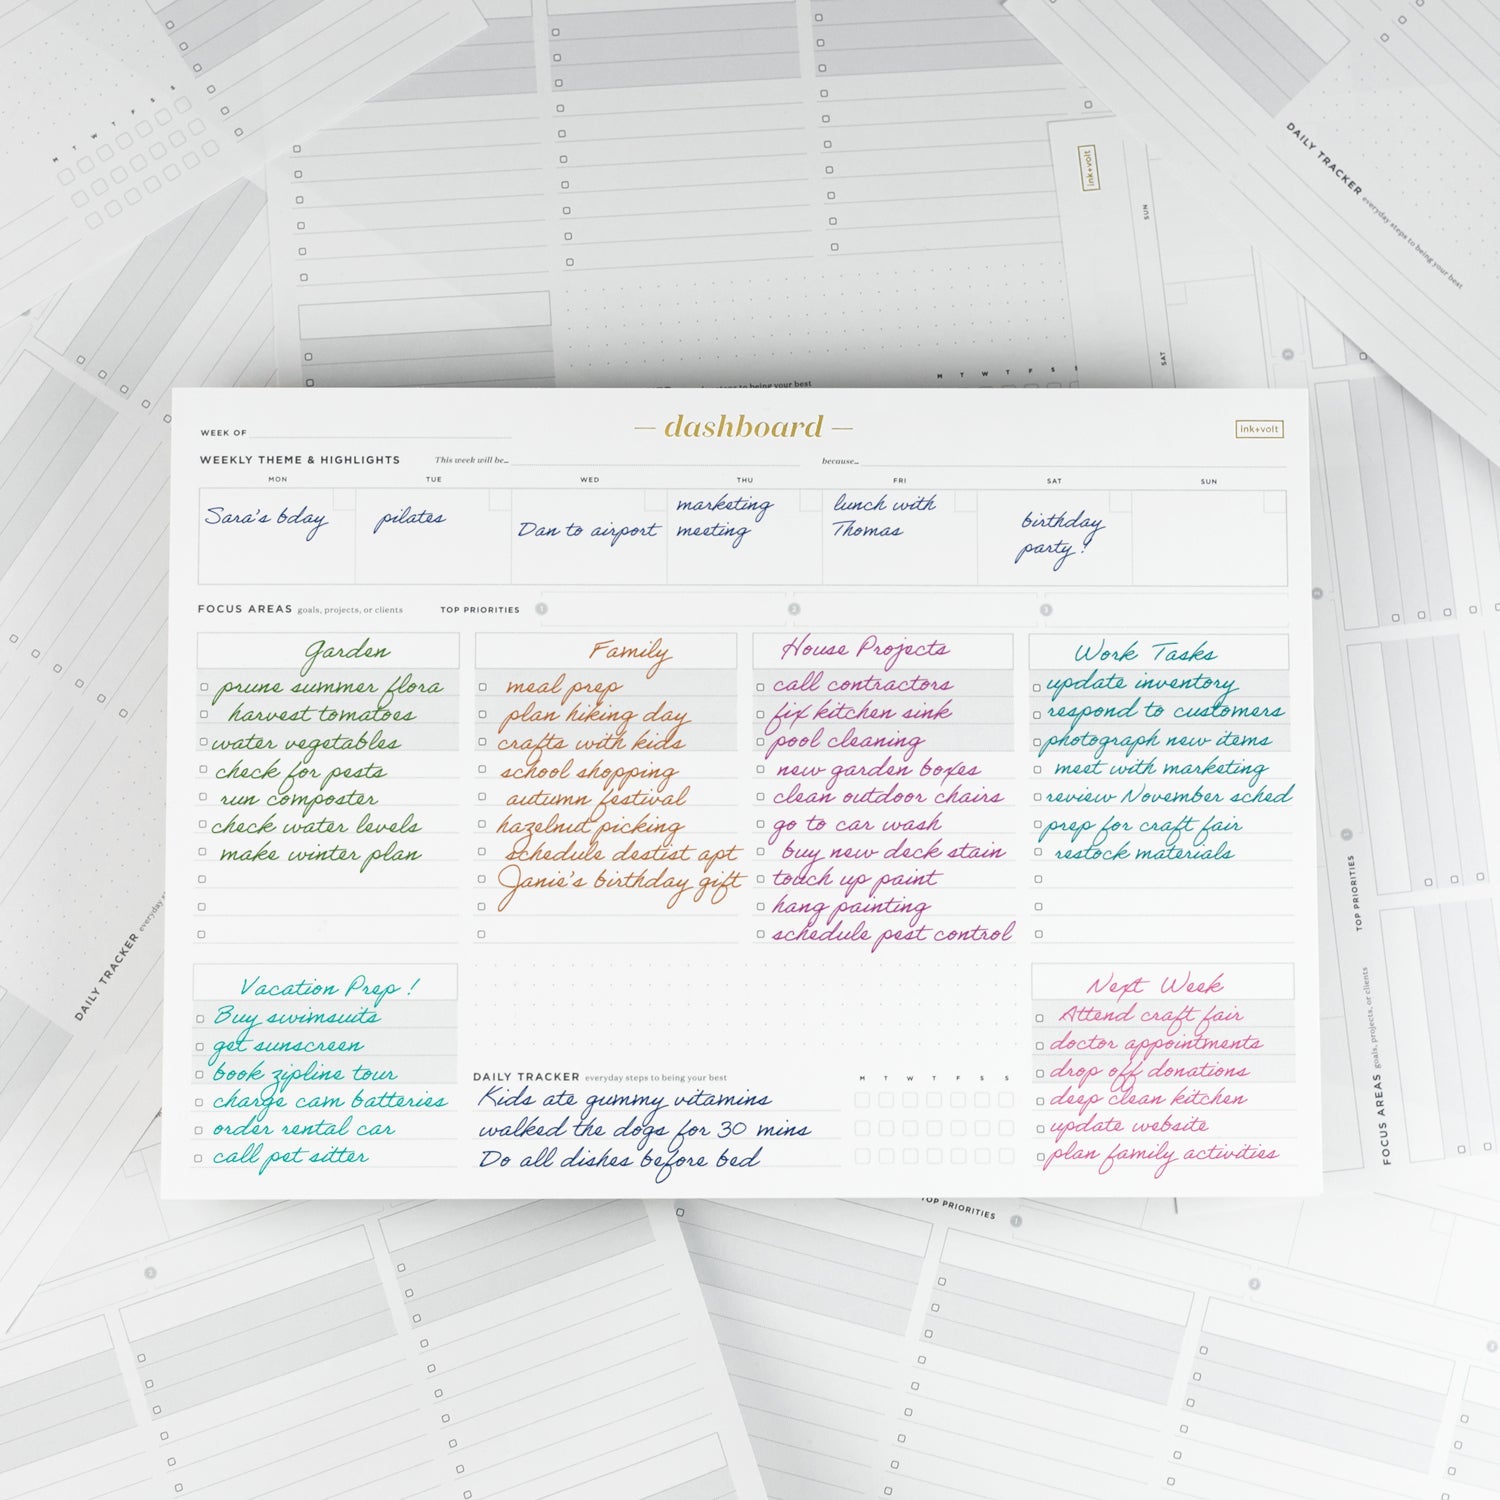 M T W T F S S
ink+volt
SUN
SAT
DAILY TRACKER everyday steps to being your best
steps to being your best
M T W T F S S
— dashboard —
ink+volt
WEEK OF
WEEKLY THEME & HIGHLIGHTS This week will be... because...
MON TUE WED THU FRI SAT SUN
Sara's bday
pilates
Dan to airport
marketing
meeting
lunch with
Thomas
birthday
party!
FOCUS AREAS goals, projects, or clients TOP PRIORITIES 1 2 3
Garden
prune summer flora
harvest tomatoes
water vegetables
check for pests
run composter
check water levels
make winter plan
Family
meal prep
plan hiking day
crafts with kids
school shopping
autumn festival
hazelnut picking
schedule destist apt
Janie's birthday gift
House Projects
call contractors
fix kitchen sink
pool cleaning
new garden boxes
clean outdoor chairs
go to car wash
buy new deck stain
touch up paint
hang painting
schedule pest control
Work Tasks
update inventory
respond to customers
photograph new items
meet with marketing
review November sched
prep for craft fair
restock materials
Vacation Prep!
Buy swimsuits
get sunscreen
book zipline tour
charge cam batteries
order rental car
call pet sitter
DAILY TRACKER everyday steps to being your best M T W T F S S
Kids ate gummy vitamins
walked the dogs for 30 mins
Do all dishes before bed
Next Week
Attend craft fair
doctor appointments
drop off donations
deep clean kitchen
update website
plan family activities
DAILY TRACKER everyday
TOP PRIORITIES
FOCUS AREAS goals, projects, or clients
TOP PRIORITIES 1
2
2